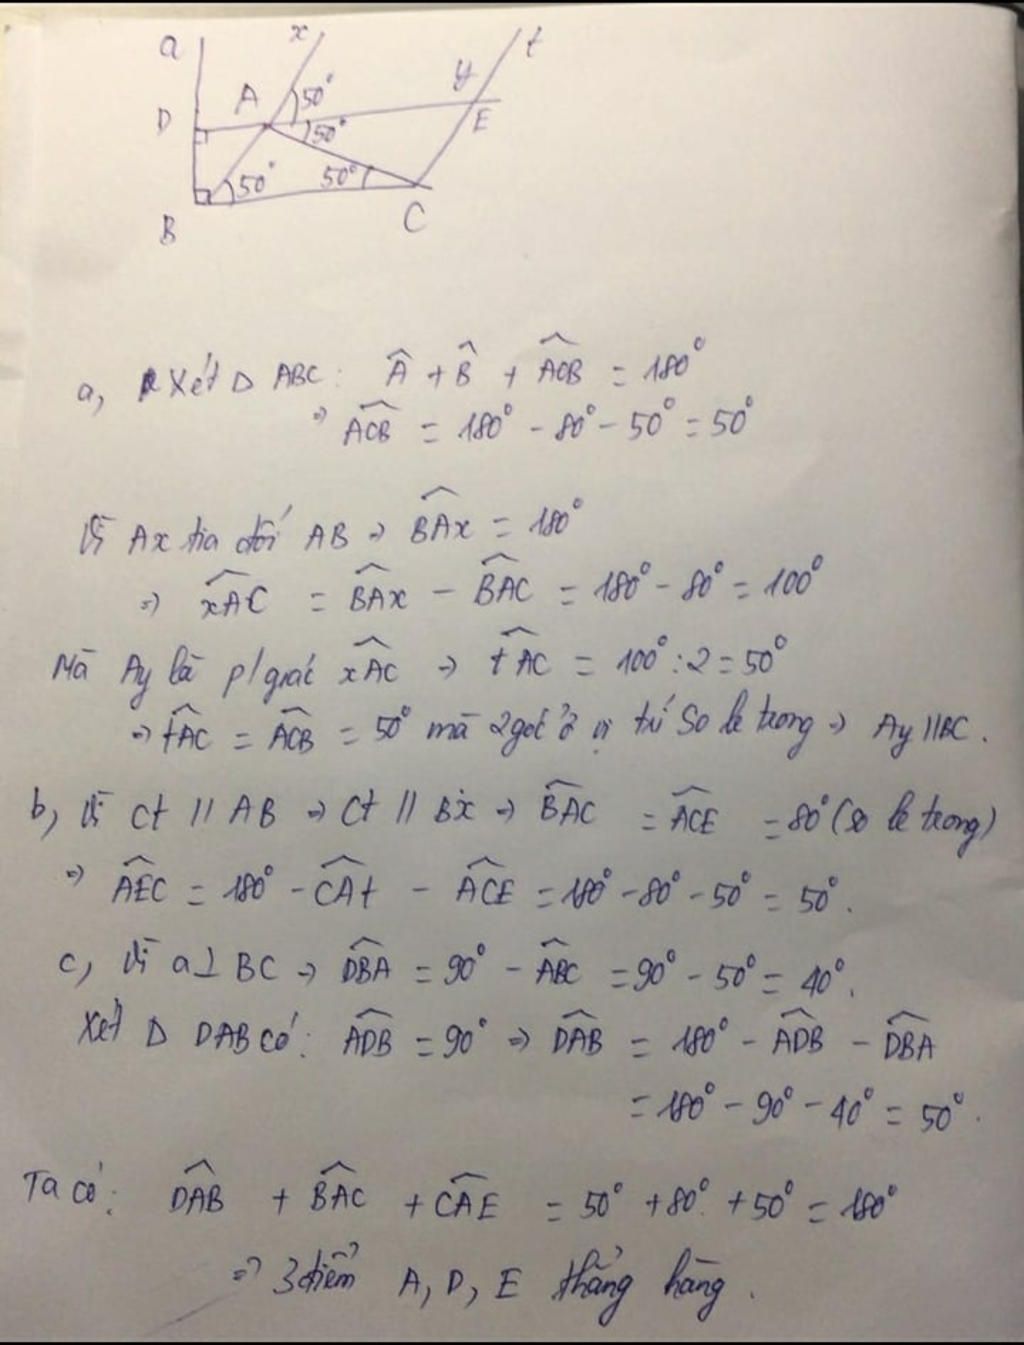 a
x
t
D
A
50°
y
E
50°
50°
50°
B
C
a, Xét Δ ABC: Â + B̂ + ACB̂ = 180°
⇒ ACB̂ = 180° - 80° - 50° = 50°
Vì Ax tia đối AB ⇒ BAx̂ = 180°
⇒ xAĈ = BAx̂ - BAĈ = 180° - 80° = 100°
Mà Ay là p/giác xAĈ ⇒ tAĈ = 100° : 2 = 50°
⇒ tAĈ = ACB̂ = 50° mà 2 góc ở vị trí So le trong ⇒ Ay // BC.
b, Vì Ct // AB ⇒ Ct // Bx ⇒ BAĈ = ACÊ = 80° (so le trong)
⇒ AEĈ = 180° - CAt̂ - ACÊ = 180° - 80° - 50° = 50°.
c, Vì a ⊥ BC ⇒ DBÂ = 90° - ABĈ = 90° - 50° = 40°.
Xét Δ DAB có: ADB̂ = 90° ⇒ DAB̂ = 180° - ADB̂ - DBÂ
= 180° - 90° - 40° = 50°.
Ta có: DAB̂ + BAĈ + CAÊ = 50° + 80° + 50° = 180°
⇒ 3 điểm A, D, E thẳng hàng.